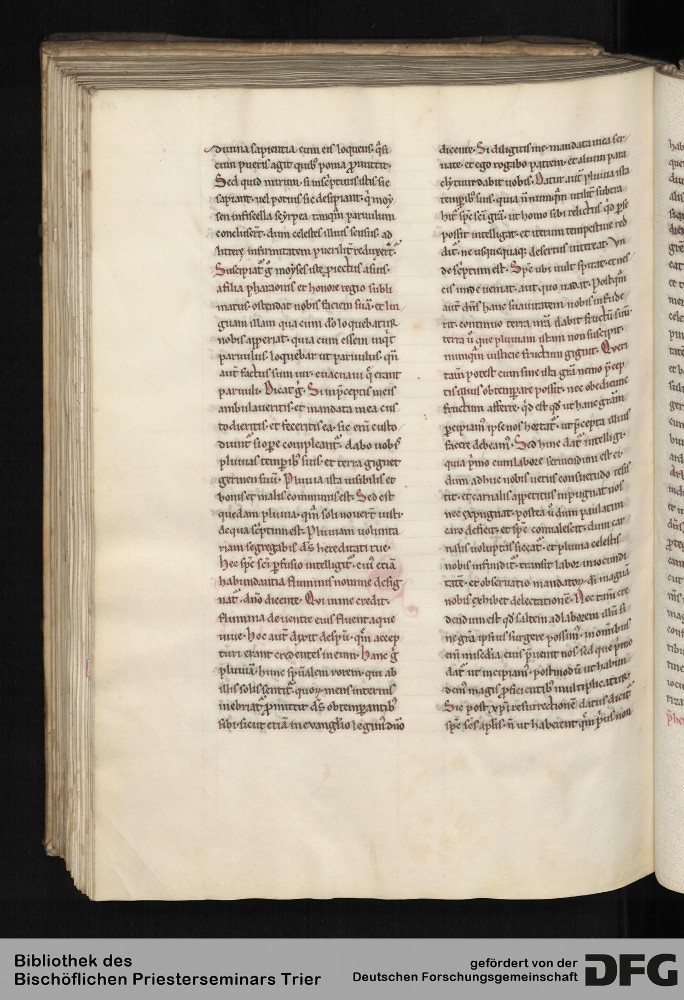 diuina sapientia cum eis loquens. q̄si
cum pueris agit quib; poma p̄mittit.
Sed quid mirum. si inscipientes isti sic
sapiant. uel potius sic desipiant. q̄ moy
sen in fiscella scyrpea tanq̄m paruulum
concluserē. dum celestes illius sensus ad
littere infirmitatem puerilit̄ reduxerē.
Suscipiat̄ g̊ moyses iste p̄iectus a suis.
a filia pharaonis et honore regio subli
matus. ostendat nobis faciem suā. et lin
guam illam qua cum dō loquebatur
nobis apperiat. quia cum essem inq̄t
paruulus. loquebar ut paruulus. q̄n
aut̄ factus sum uir. euacuaui q̄ erant
paruuli. Dicat g̊. Si in p̄ceptis meis
ambulaueritis. et mandata mea cus
todieritis. et feceritis ea. sic enī custo
diunt̄ si ope compleant̄. dabo uobis
pluuias temporib; suis. et terra gignet
germen suū. Pluuia ista uisibilis et
bonis et malis communis est. Sed est
quedam pluuia. q̄m soli nouerē iusti.
de qua sc̄ptum est. Pluuiam uolunta
riam segregabis d̄s hereditati tue.
Hec sp̄c sc̄i p̄fusio intelligit̄. cui' etiā
habundantia fluminis nomine desig
nat̄. dn̄o dicente. Qui in me credit.
flumina de uentre eius fluent aque
uiue. Hoc aut̄ dixit de sp̄u. q̄m accep
turi erant credentes in eum. Hanc g̊
pluuiā. hunc sp̄ualem rorem. qui ab
illis solis sentit̄. quor̄ mens interius
inebriat̄. p̄mittit d̄s obtemperantib;
sibi. sicut etiā in euanglīo legim' dn̄o
dicente. Si diligitis me. mandata mea ser
uate. et ego rogabo patrem. et alium para
clytum dabit uobis. Datur aut̄ pluuia ista
temporib; suis. quia n̄ numq̄m utilit̄ subtra
hit̄ sp̄c sc̄i grā. ut homo sibi relictus q̄d p̄ se
possit intelligat. et iterum tempestiue red
dit̄. ne usquequaq; desertus intereat. Vn
de sc̄ptum est. Sp̄c ubi uult spirat. et nes
cis unde ueniat. aut quo uadat. Postq̄m
aut̄ dn̄s hanc suauitatem nobis infude
rit. continuo terra nr̄a dabit fructū suū.
terra u̅ que pluuiam istam non suscipit.
numq̄m iusticie fructum gignit. Queri
tam̄ potest cum sine ista grā nemo p̄cep
tis diuis obtempare possit. nec obedientie
fructum afferre. q̄d est q̄d ut hanc grām
p̄cipiam' ipse nos hortat̄. ut p̄cepta illius
facere debeam'. Sed hinc dat̄ intelligi.
quia p̄mo cum labore seruiendum est ei.
dum adhuc nobis uetus consuetudo resis
tit. et carnalis appetitus impugnat nos
nec expugnat. postea u̅ dum paulatim
caro deficit. et sp̄c conualescit. dum car
nalis uoluptas siccat̄. et pluuia celestis
nobis infundit̄. transit labor in iocundi
tatē. et obseruatio mandator̄ di magnā
nobis exhibet delectationē. Nec tam̄ cre
dendum est q̄d saltem ad laborem illū si
ne grā ipsius surgere possim'. in omnibus
enī misc̄dia eius p̄uenit nos. sed que p̄mo
dat̄ ut incipiam'. postmodū ut habun
dem' magis p̄ficientib; multiplicatur.
Sic post xp̄i resurrectionē datus dicit̄
sp̄c sc̄s aplis. n̄ ut haberent q̄m p̄us non
Bibliothek des
Bischöflichen Priesterseminars Trier
gefördert von der
Deutschen Forschungsgemeinschaft
DFG